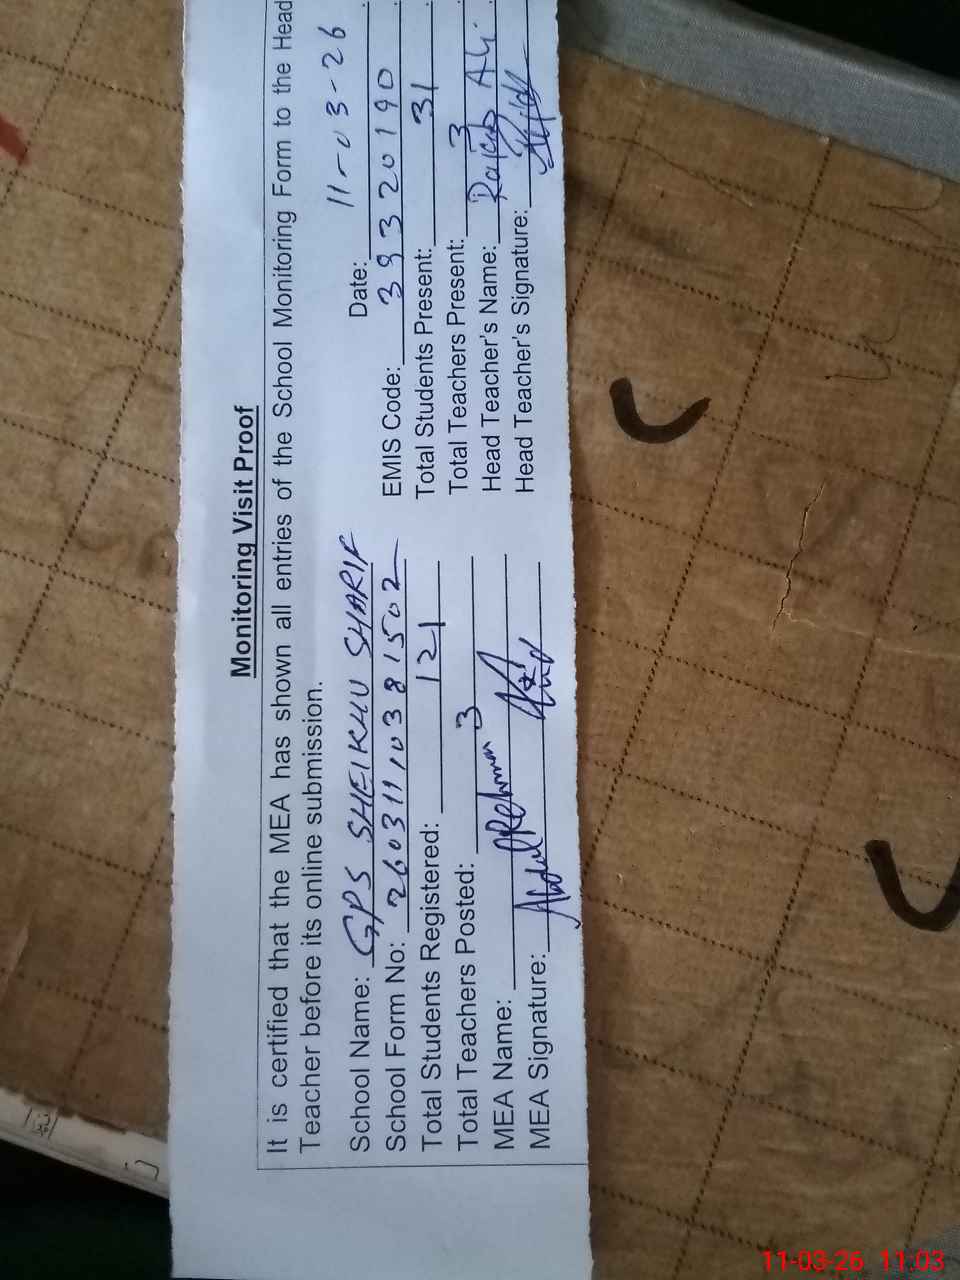 Monitoring Visit Proof
It is certified that the MEA has shown all entries of the School Monitoring Form to the Head
Teacher before its online submission.
Date: 11-03-26
School Name: GPS SHEIKHU SHARIF
EMIS Code: 39320190
School Form No: 2603111,0381502
Total Students Present: 31
Total Students Registered: 121
Total Teachers Present: 3
Total Teachers Posted: 3
Head Teacher's Name: Ali
MEA Name: Abdul Rehman
Head Teacher's Signature:
MEA Signature:
11-03-26 11:03